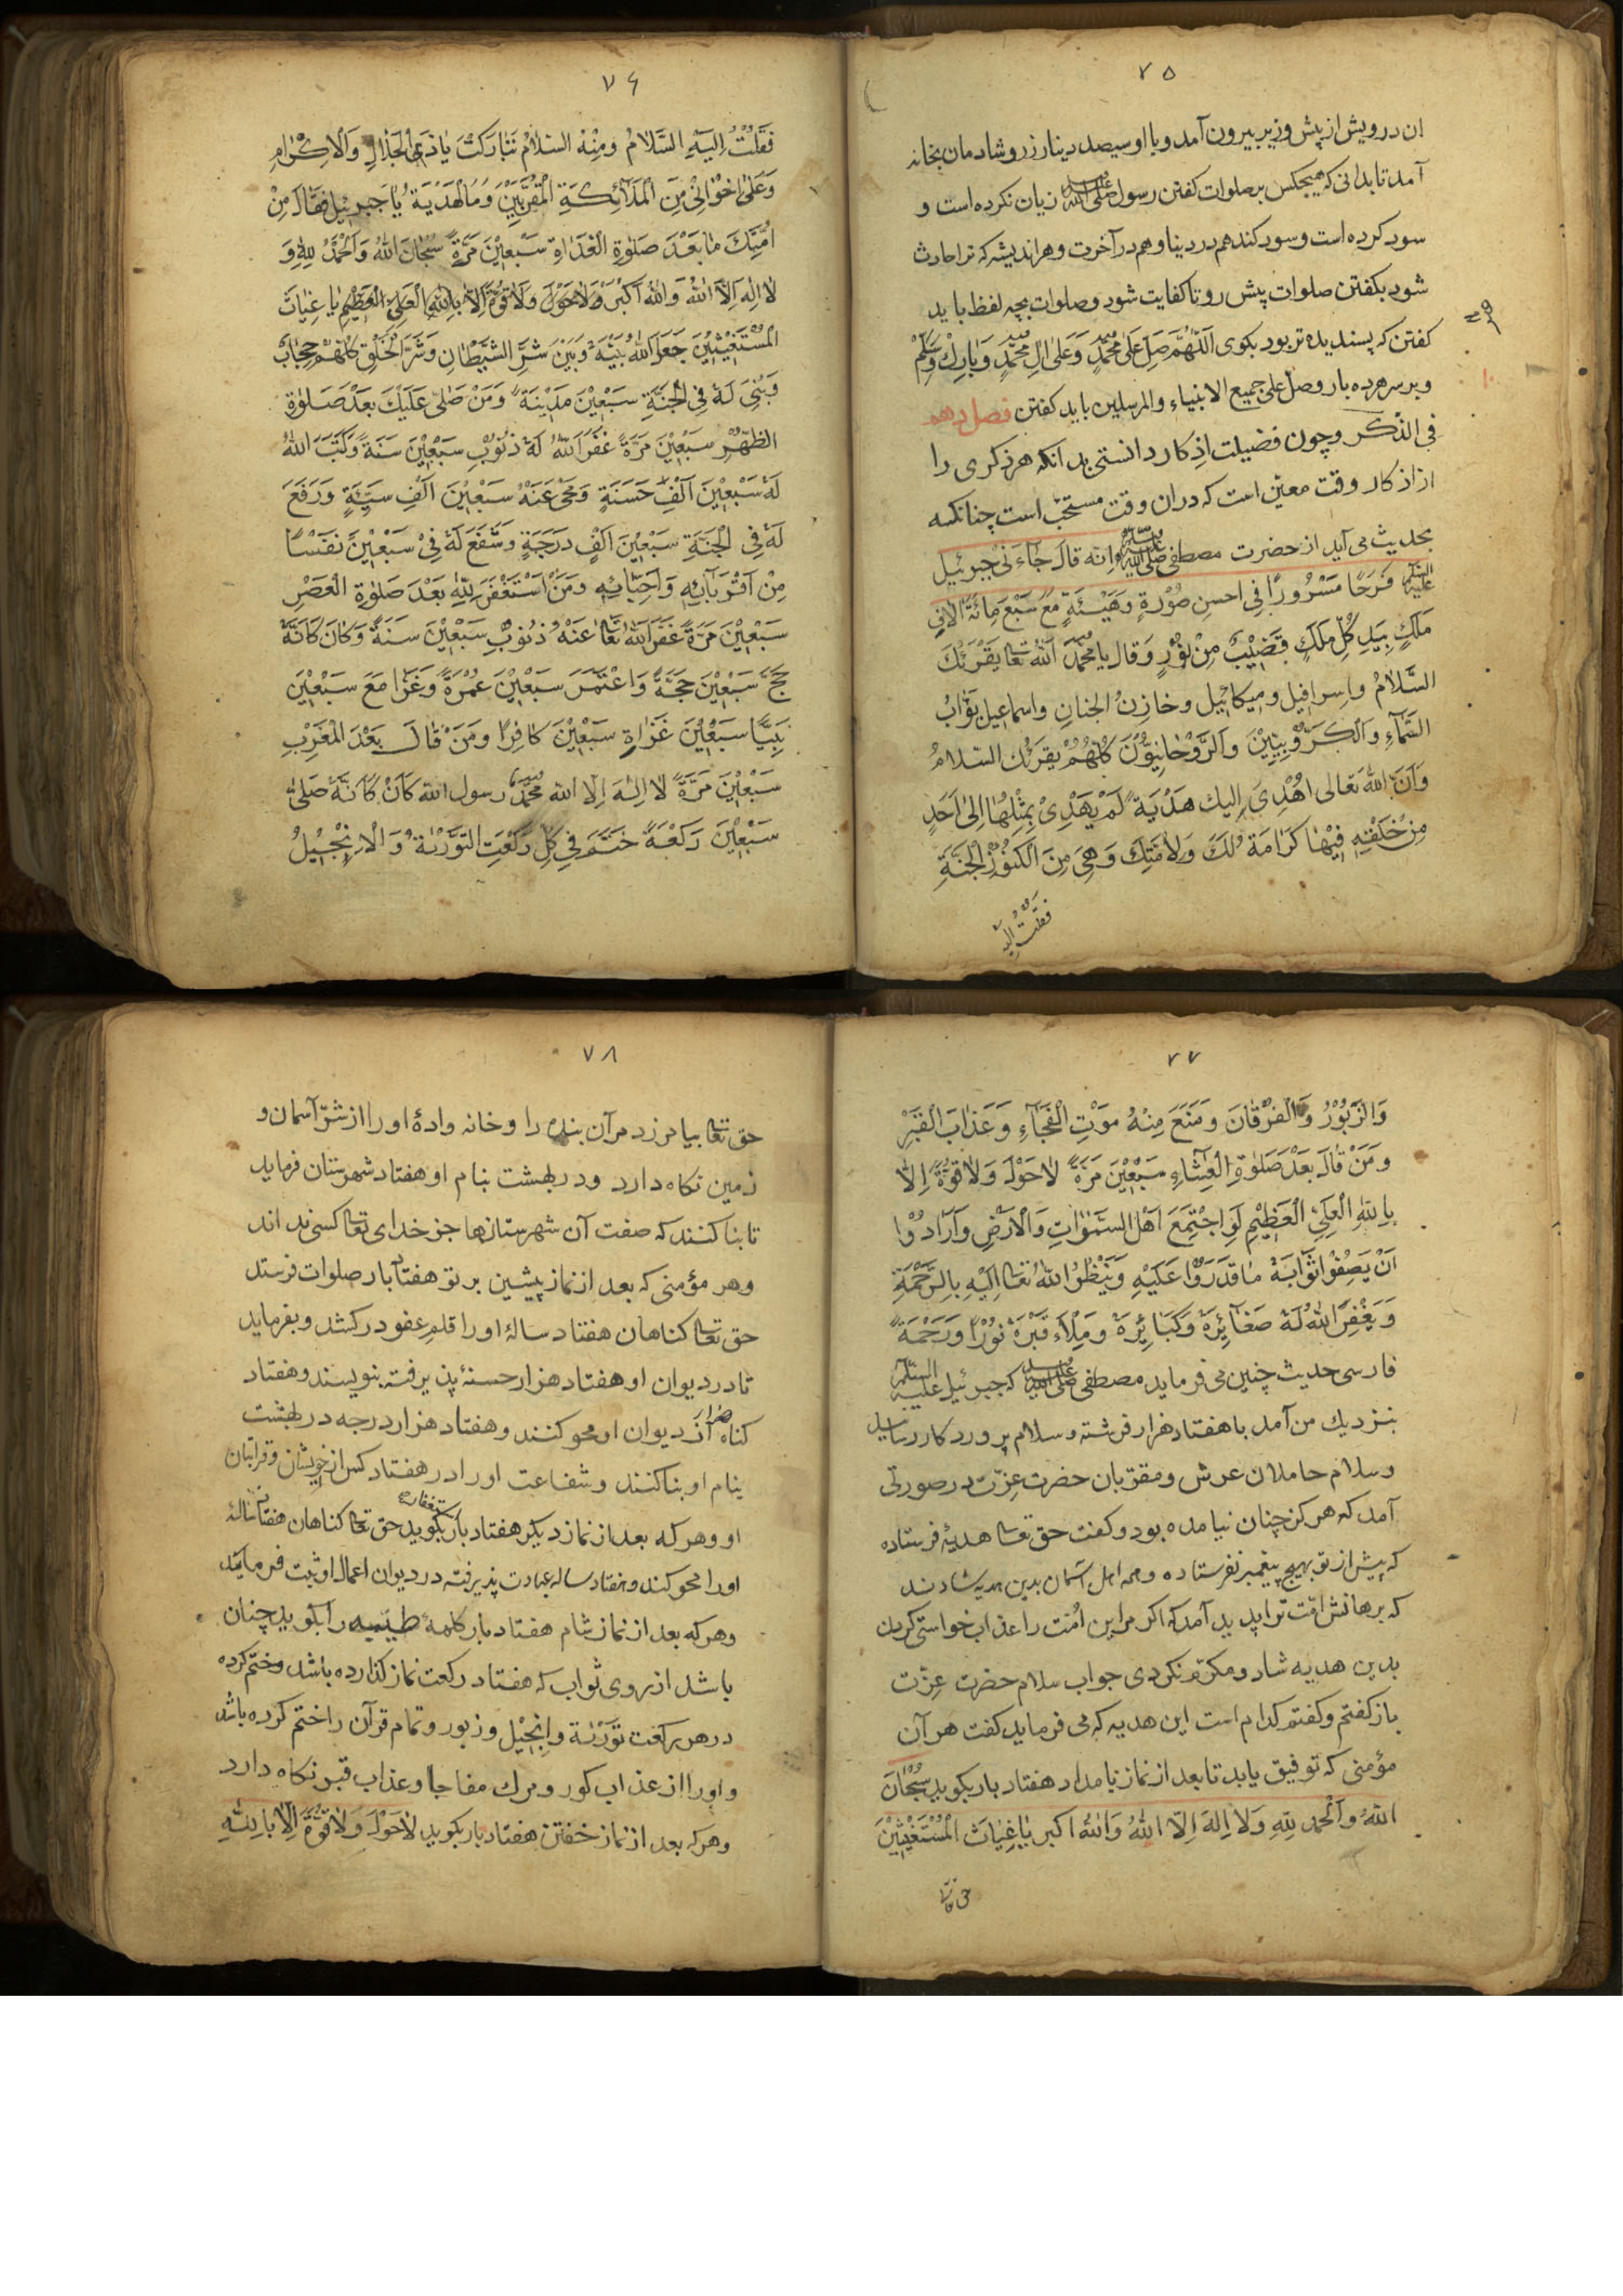 ۷۵
ان درویش از پیش وزیر بیرون آمد و با او سیصد دینار زر و شادمان بخانه
آمد تا بدانی که هیچکس بر صلوات کفتن رسول صلی الله علیه زیان نکرده است و
سود کرده است و سود کند هم در دنیا و هم در آخرت و هر اندیشه که ترا حادث
شود بکفتن صلوات پیش رو تا کفایت شود و صلوات بچه لفظ باید
کفتن که پسندیده تر بود بکوی اللّهُمَّ صَلِّ عَلٰی مُحَمَّدٍ وَعَلٰی اٰلِ مُحَمَّدٍ وَبٰارِكْ وَسَلِّمْ
و بر سر هر ده بار وصل علی جمیع الانبیاء والمرسلین باید کفتن فصل دهم
فی الذّکر و چون فضیلت اذکار دانستی بدانکه هر ذکری را
از اذکار وقت معیّن است که دران وقت مستحبّ است چنانکه
بحدیث می آید از حضرت مصطفی صلی الله علیه وسلم انه قال جٰآءَنی جبرئیل
علیه السلام فَرَحًا مَسْرُورًا فی احسن صُوْرَةٍ وَهَیْئَةٍ مَعَ سَبْعَ مِائَةَ اٰلافِ
مَلَكٍ بِیَدِ كُلِّ مَلَكٍ قَضِیْبٌ مِنْ نُوْرٍ وَقال یا مُحَمَّدُ اَللهُ تعا یقرئك
السَّلامُ واسرافیل و میکائیل و خازنُ الجنان واسماعیل بَوّابُ
السَّمآءِ وَالكَرُّوْبِیِیْنَ وَالرَّوْحٰانِیُّوْنَ كُلُّهُمْ یقرئك السّلامُ
وَاَنَّ اللهَ تَعالی اَهْدِیَ اِلیك هَدْیَةً لَمْ یَهْدِیْ بِمِثْلِهٰا اِلیٰ اَحَدٍ
مِنْ خَلْقِهِ فِیْهٰا كَرٰامَةٌ لَكَ وَلِاُمَّتِكَ وَهِیَ مِنَ الْكُنُوْزِ الْجَنَّةِ
فقلت الیه
۷۶
فَقُلْتُ اِلَیْهِ السَّلاٰمُ ومِنْهُ السّلاٰمُ تَبٰارَكْتَ یٰا ذَی الْجَلالِ وَالْاِكْرٰامِ
وَعَلیٰ اِخْوٰانِیْ مِنَ الْمَلٰآئِكَةِ الْمُقَرَّبِیْنَ وَمَا الْهَدْیَةُ یٰا جبرئیل فقٰالَ مِنْ
اُمَّتِكَ مٰا بَعْدَ صَلٰوةِ الْغَدٰاةِ سَبْعِیْنَ مَرَّةً سُبْحٰانَ اللهُ وَالْحَمْدُ لِلّٰهِ وَ
لاٰ اِلٰهَ اِلاَّ اللهُ وَاللهُ اَكْبَرُ وَلاٰ حَوْلَ وَلاٰ قُوَّةَ اِلاّٰ بِاللهِ الْعَلِیِّ الْعَظِیْمِ یٰا غِیٰاثَ
الْمُسْتَغِیْثِیْنَ جَعَلَ اللهُ بَیْنَهُ وَبَیْنَ شَرَّ الشَّیْطٰانِ وَشَرَّ الْخَلْقِ كُلِّهُمْ حِجٰابٌ
وَبُنِیَ لَهُ فِی الْجَنَّةِ سَبْعِیْنَ مَدِیْنَةً وَمَنْ صَلّیٰ عَلَیْكَ بَعْدَ صَلٰوةِ
الظُّهْرِ سَبْعِیْنَ مَرَّةً غَفَرَ اللهُ لَهُ ذُنُوْبُ سَبْعِیْنَ سَنَةً وَكَتَبَ اللهُ
لَهُ سَبْعِیْنَ اَلْفِ حَسَنَةٍ وَمَحٰی عَنْهُ سَبْعِیْنَ اَلْفِ سَیِّئَةٍ وَرَفَعَ
لَهُ فِی الْجَنَّةِ سَبْعِیْنَ اَلْفِ دَرَجَةٍ وَشَفَعَ لَهُ فِیْ سَبْعِیْنَ نَفْسًا
مِنْ اَقْرَبٰآئِهِ وَاَحِبّٰائِهِ وَمَنْ اسْتَغْفَرَ لِلّٰهِ بَعْدَ صَلٰوةِ الْعَصْرِ
سَبْعِیْنَ مَرَّةً غَفَرَ اللهُ تعا عَنْهُ ذُنُوْبُ سَبْعِیْنَ سَنَةً وَكٰانَ كَانَّهُ
حَجَّ سَبْعِیْنَ حَجَّةً وَاعْتَمَرَ سَبْعِیْنَ عُمْرَةً وَغَزٰا مَعَ سَبْعِیْنَ
نَبِیًّا سَبْعِیْنَ غَزٰاةٍ سَبْعِیْنَ كٰافِرًا وَمَنْ قٰالَ بَعْدَ الْمَغْرِبِ
سَبْعِیْنَ مَرَّةً لاٰ اِلٰهَ اِلّا الله مُحَمَّدٌ رسول الله كَانَ كَاَنَّهُ صَلّیٰ
سَبْعِیْنَ رَكْعَةً خَتَمَ فِی كُلِّ رَكْعَتِ التَّوْرٰیةُ وَالْاِنْجِیْلُ
۷۷
وَالزَّبُوْرُ وَالْفُرْقٰانَ وَمَنَعَ مِنْهُ مَوْتِ الْفُجَآءِ وَعَذٰابَ الْقَبْرِ
وَمَنْ قٰالَ بَعْدَ صَلٰوةِ الْعِشٰآءِ سَبْعِیْنَ مَرَّةً لاٰ حَوْلَ وَلاٰ قُوَّةَ اِلاّٰ
بِاللهِ الْعَلِیِّ الْعَظِیْمِ لَوِ اجْتَمِعَ اَهْلُ السَّمٰوٰاتِ وَالْاَرْضِ وَاَرٰادُوْا
اَنْ یَصِفُوْا ثَوٰابَهُ مٰا قَدَرُوْا عَلَیْهِ وَیَنْظُرُ اللهُ تعا اِلَیْهِ بِالرَّحْمَةِ
وَیَغْفِرُ اللهُ لَهُ صَغٰآئِرَهُ وَكَبٰائِرَهُ وَمِلْاَء قَبْرَهُ نُوْرًا وَرَحْمَةً
فارسی حدیث چنین می فرماید مصطفی صلی الله علیه که جبرئیل علیه السلام
بنزدیك من آمد با هفتاد هزار فرشته و سلام پرورد کار رسانید
و سلام حاملان عرش و مقرّبان حضرت عزّت در صورتی
آمد که هرکز چنان نیامده بود و کفت حق تعا هدیهٔ فرستاده
که پیش از تو بهیچ پیغمبر نفرستاده و همه اهل آسمان بدین هدیه شادند
که برهانش امّت ترا پدید آمد که اکر مر این امّت را عذاب خواستی کردن
بدین هدیه شاد و مکرّم نکردی جواب سلام حضرت عزّت
باز کفتم و کفتم کدام است این هدیه که می فرماید کفت هر آن
مؤمنی که توفیق یابد تا بعد از نماز بامداد هفتاد بار بکوید سُبْحٰانَ
اللهُ وَالْحمد لِلّٰهِ وَلا اِلٰهَ اِلاّ اللهُ وَاللهُ اکبر یٰا غِیٰاثَ الْمُسْتَغِیْثِیْنَ
حق تعا
۷۸
حق تعا بیامرزد مر آن بنده را و خانه وادهٔ او را از شرّ آسمان و
زمین نکاه دارد و در بهشت بنام او هفتاد شهرستان فرماید
تا بنا کنند که صفت آن شهرستانها جز خدای تعا کسی نداند
و هر مؤمنی که بعد از نماز پیشین بر تو هفتاد بار صلوات فرستد
حق تعا کناهان هفتاد سالهٔ او را قلم عفو درکشد و بفرماید
تا در دیوان او هفتاد هزار حسنهٔ پذیرفته بنویسند و هفتاد
هزار
کناه از دیوان او محو کنند و هفتاد هزار درجه در بهشت
بنام او بنا کنند و شفاعت او را در هفتاد کس از خویشان و قرابتان
او و هر که بعد از نماز دیکر هفتاد بار استغفار بکوید حق تعا کناهان هفتاد سالهٔ
او را محو کند و هفتاد ساله عبادت پذیرفته در دیوان اعمال او ثبت فرماید
و هر که بعد از نماز شام هفتاد بار کلمهٔ طیّبه را بکوید چنان
باشد از روی ثواب که هفتاد رکعت نماز کذارده باشد و ختم کرده
در هر رکعت تَوْرٰیة و اِنْجِیْل و زبور و تمام قرآن را ختم کرده باشد
و او را از عذاب کور و مرك مفاجا و عذاب قبر نکاه دارد
و هر که بعد از نماز خفتن هفتاد بار بکوید لاٰ حَوْلَ وَلاٰ قُوَّةَ اِلاّٰ بِاللهِ